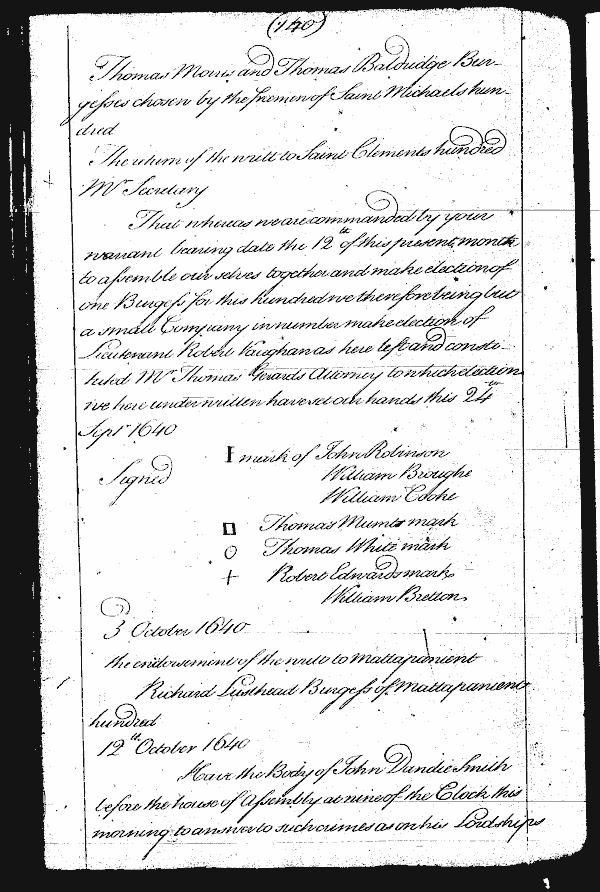 (140)
Thomas Morris and Thomas Baldridge Bur-
gesses chosen by the fremen of Saint Michaels hun-
dred
The return of the writt to Saint Clements hundred
Mr Secretary
That whereas we are commanded by your
warrant bearing date the 12th of this present month
to assemble our selves together and make election of
one Burgess for this hundred we therefore being but
a small Company in number make election of
Lieutenant Robert Vaughan as here left and consti-
tuted Mr Thomas Gerards Attorney to which election
we here under written have set our hands this 24th
Sept 1640
I mark of John Robinson
Signed William Broughe
William Cooke
□ Thomas Mumts mark
O Thomas White mark
+ Robert Edwards mark
William Bretton
3 October 1640
the endorsement of the writt to mattapanient
Richard Lusthead Burgess of Mattapanient
hundred
12th October 1640
Have the Body of John Dandie Smith
before the house of Assembly at nine of the Clock this
morning to answer to such crimes as on his Lordships